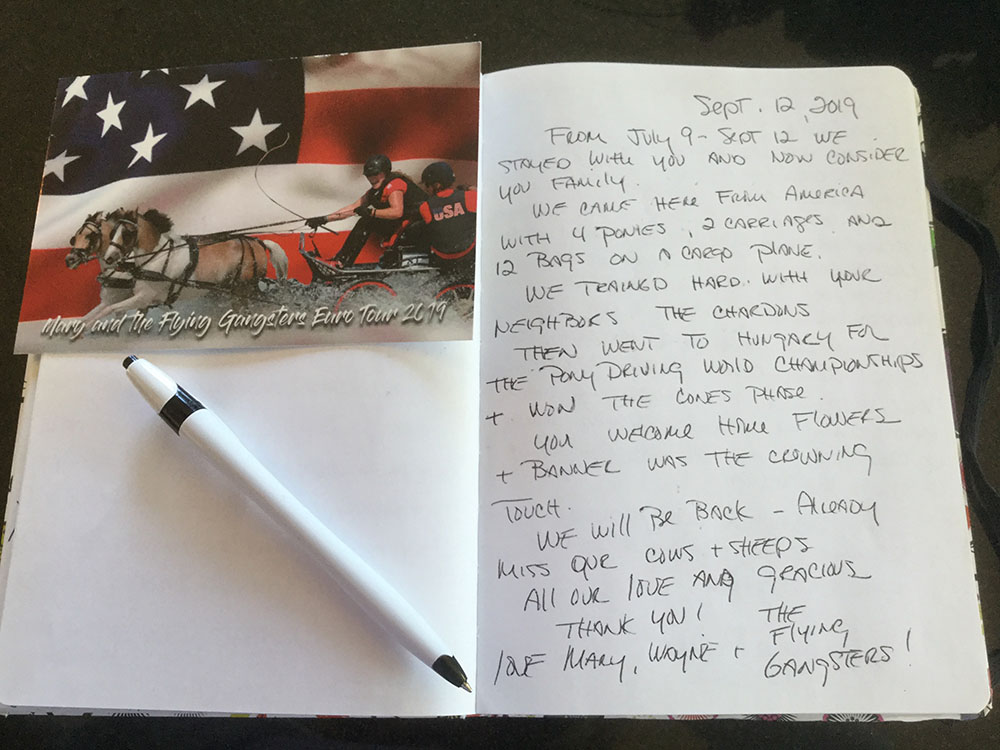 USA
Mary and the Flying Gangsters Euro Tour 2019
Sept. 12, 2019
From July 9 - Sept 12 we
stayed with you and now consider
you family.
We came here from America
with 4 ponies, 2 carriages and
12 bags on a cargo plane.
We trained hard with your
neighbors the Chardons
Then went to Hungary for
the Pony Driving World Championships
+ won the cones phase.
You welcome home flowers
+ banner was the crowning
touch.
We will be back - Already
miss our cows + sheeps
All our love and gracious
thank you!
love Mary, Wayne + The
Flying
Gangsters!